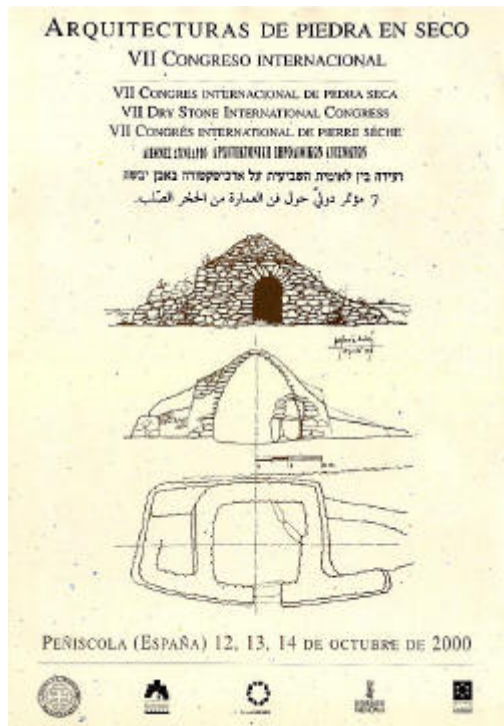 ARQUITECTURAS DE PIEDRA EN SECO
VII CONGRESO INTERNACIONAL
VII CONGRES INTERNACIONAL DE PEDRA SECA
VII DRY STONE INTERNATIONAL CONGRESS
VII CONGRÉS INTERNATIONAL DE PIERRE SÈCHE
ועידה בין לאומית השביעית על ארכיטקטורה באבן יבשה
7 مؤتمر دوليّ حول فن العمارة من الحجر الصّلب.
PEÑISCOLA (ESPAÑA) 12, 13, 14 DE OCTUBRE DE 2000